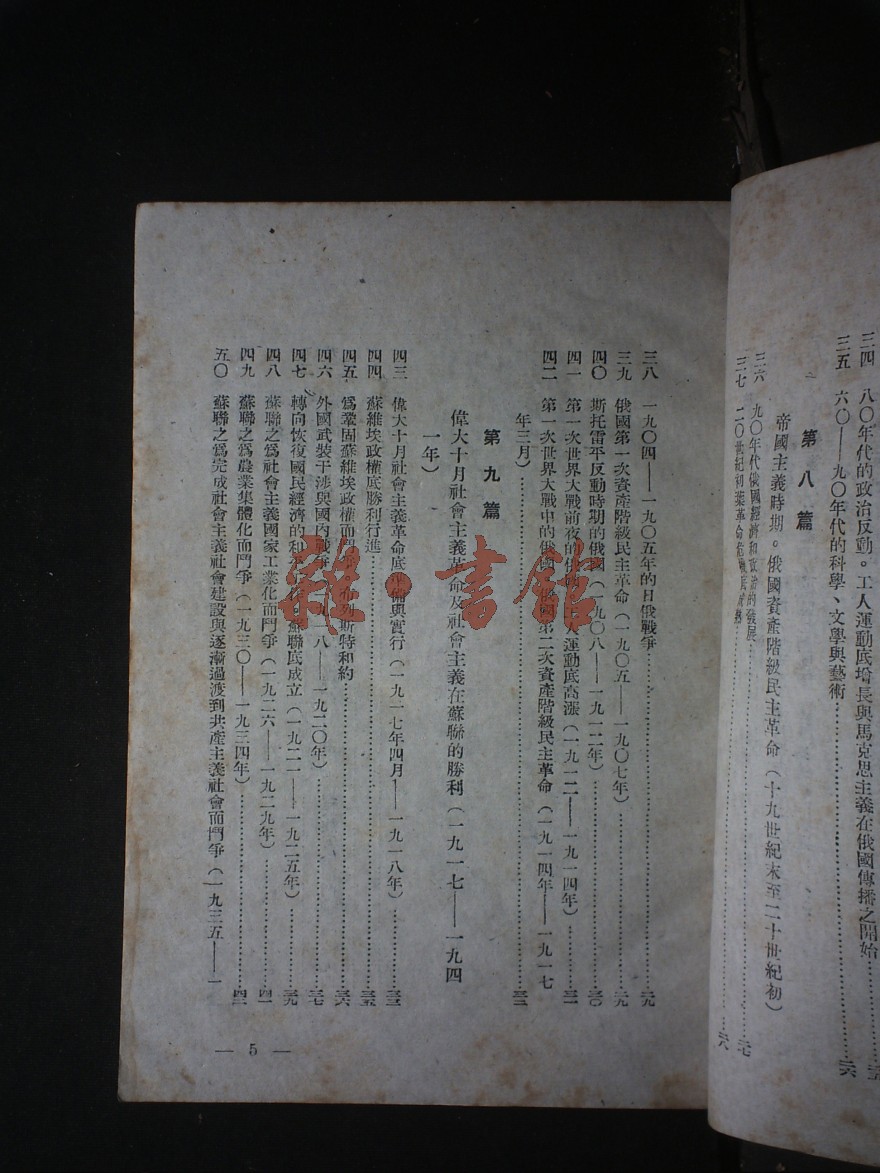 三四 八〇年代的政治反動。工人運動底增長與馬克思主義在俄國傳播之開始
三五 六〇——九〇年代的科學、文學與藝術 二六
第八篇
帝國主義時期。俄國資產階級民主革命（十九世紀末至二十世紀初）
三六 九〇年代俄國經濟和政治的發展 二七
三七 二〇世紀初葉革命危機底成熟 二八
三八 一九〇四——一九〇五年的日俄戰爭 二九
三九 俄國第一次資產階級民主革命（一九〇五——一九〇七年） 二九
四〇 斯托雷平反動時期的俄國（一九〇八——一九一二年） 三〇
四一 第一次世界大戰前夜的俄國 工人運動底高漲（一九一二——一九一四年） 三一
四二 第一次世界大戰中的俄國 俄國第二次資產階級民主革命（一九一四年——一九一七
年三月） 三二
第九篇
偉大十月社會主義革命及社會主義在蘇聯的勝利（一九一七——一九四
一年）
四三 偉大十月社會主義革命底準備與實行（一九一七年四月——一九一八年） 三三
四四 蘇維埃政權底勝利行進 三五
四五 為鞏固蘇維埃政權而鬥爭 布列斯特和約 三六
四六 外國武裝干涉與國內戰爭（一九一八——一九二〇年） 三七
四七 轉向恢復國民經濟的和平 蘇聯底成立（一九二一——一九二五年） 三九
四八 蘇聯之為社會主義國家工業化而鬥爭（一九二六——一九二九年） 四一
四九 蘇聯之為農業集體化而鬥爭（一九三〇——一九三四年） 四二
五〇 蘇聯之為完成社會主義社會建設與逐漸過渡到共產主義社會而鬥爭（一九三五——一
— 5 —
雜·書館